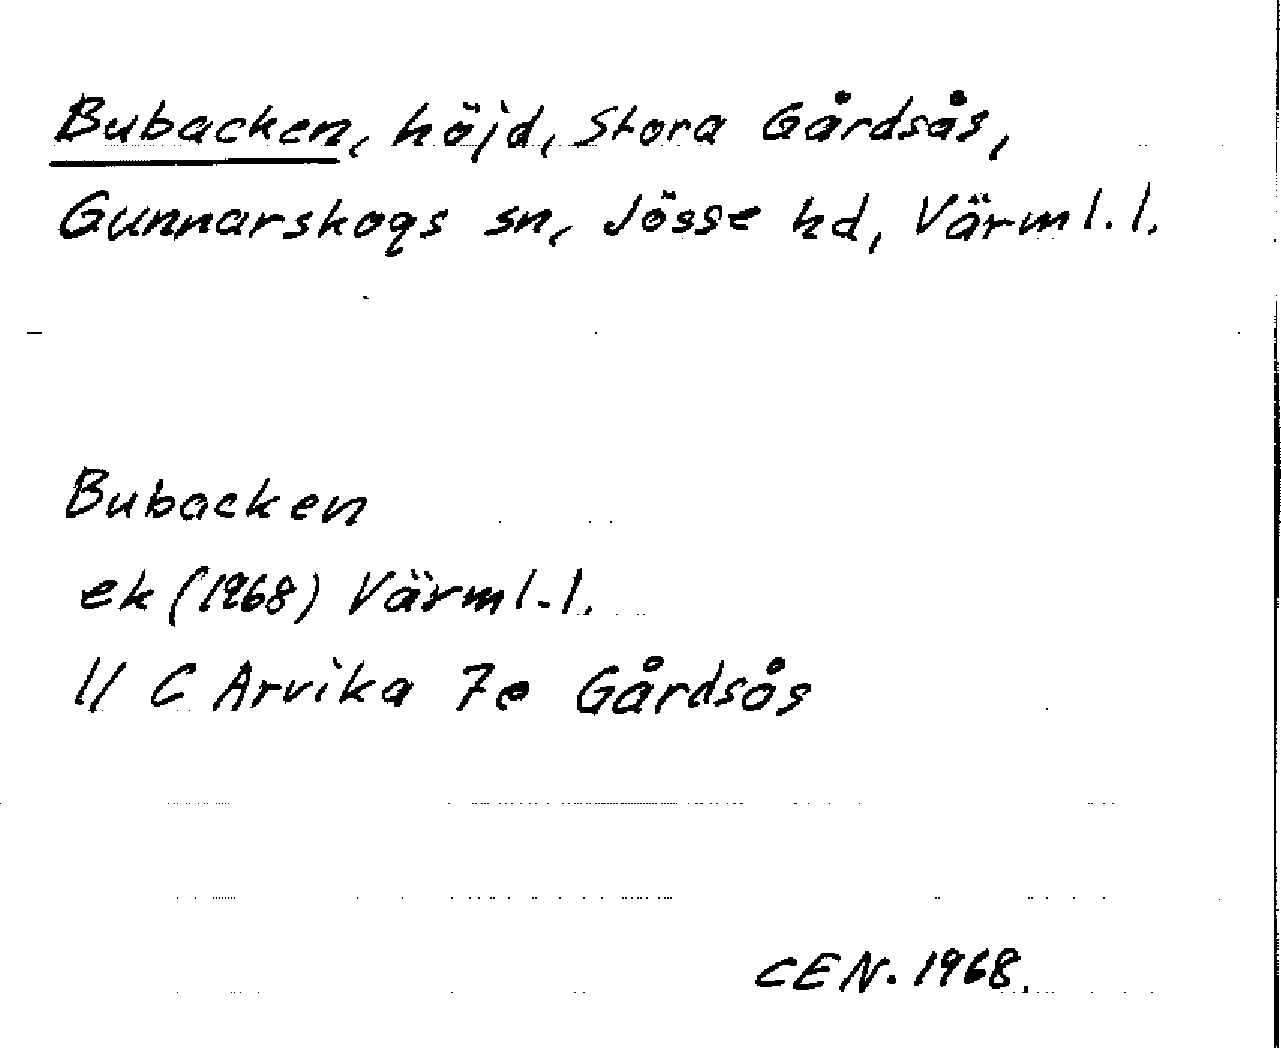 Bubacken, höjd, Stora Gårdsås,
Gunnarskogs sn, Jösse hd, Värml. l.
Bubacken
ek (1968) Värml. l.
11 C Arvika 7e Gårdsås
CEN. 1968.